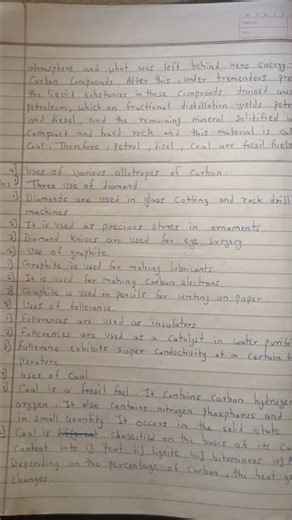 atmosphere and what was left behind were energy
Carbon Compounds. After this, under tremendous pre
the liquid substances in these Compounds drained awa
petroleum, which on fractional distillation yields petr
and diesel, and the remaining mineral solidified in
Compact and hard rock and this material is cal
Coal. Therefore, petrol, disel, Coal are fossil fuels
Uses of various allotropes of Carbon.
Three use of diamond.
Diamonds are used in glass Cutting and rock drill
machines
2) It is used as precious stones in ornaments
3) Diamond knives are used for eye surgery
Use of graphite
Graphite is used for making lubricants.
It is used for making Carbon electrons
Graphite is used in pencils for writing on paper
Uses of fullerence.
Fullerences are used as insulators
Fullerences are used as a Catalyst in water purifi
3) Fullerene exhibits super conductivity at a certain t
perature
Uses of Coal
Coal is a fossil fuel. It contains Carbon hydrogen
oxygen. It also contains nitrogen phosphorus and
in small quantity. It occurs in the solid state
Coal is classified on the basis of its Ca
Content into i) Peat ii) lignite iii) bituminous iv)
Depending on the percentage of Carbon, the heat ge
changes.